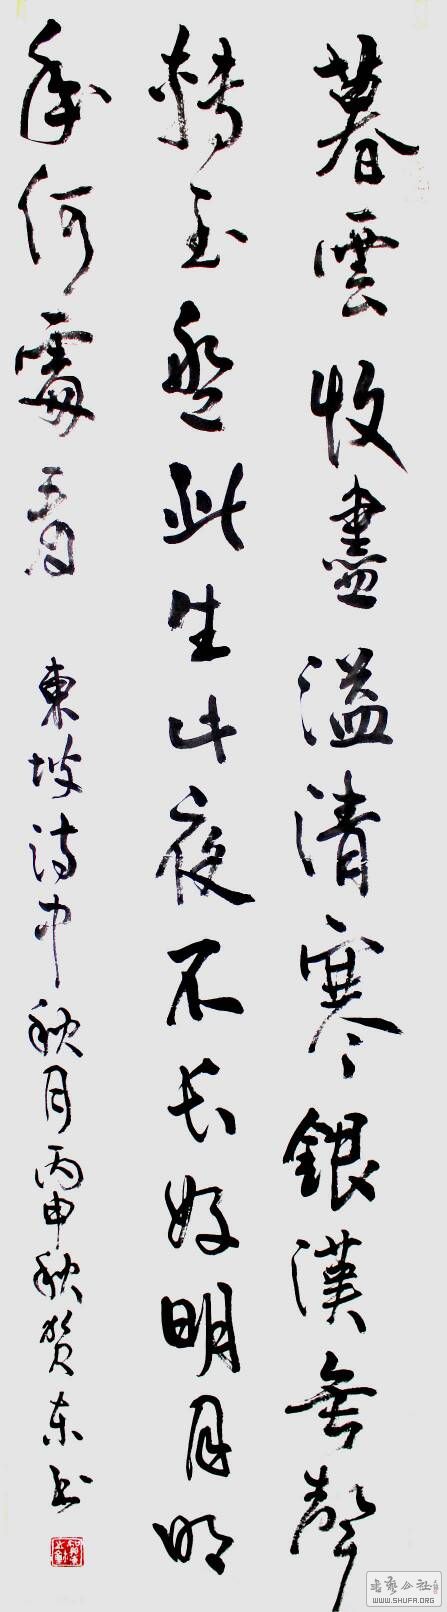 暮雲收盡溢清寒銀漢無聲
轉玉盤此生此夜不長好明月明
年何處看
東坡詩中秋月丙申秋贺东书
書藝公社
WWW.SHUFA.ORG